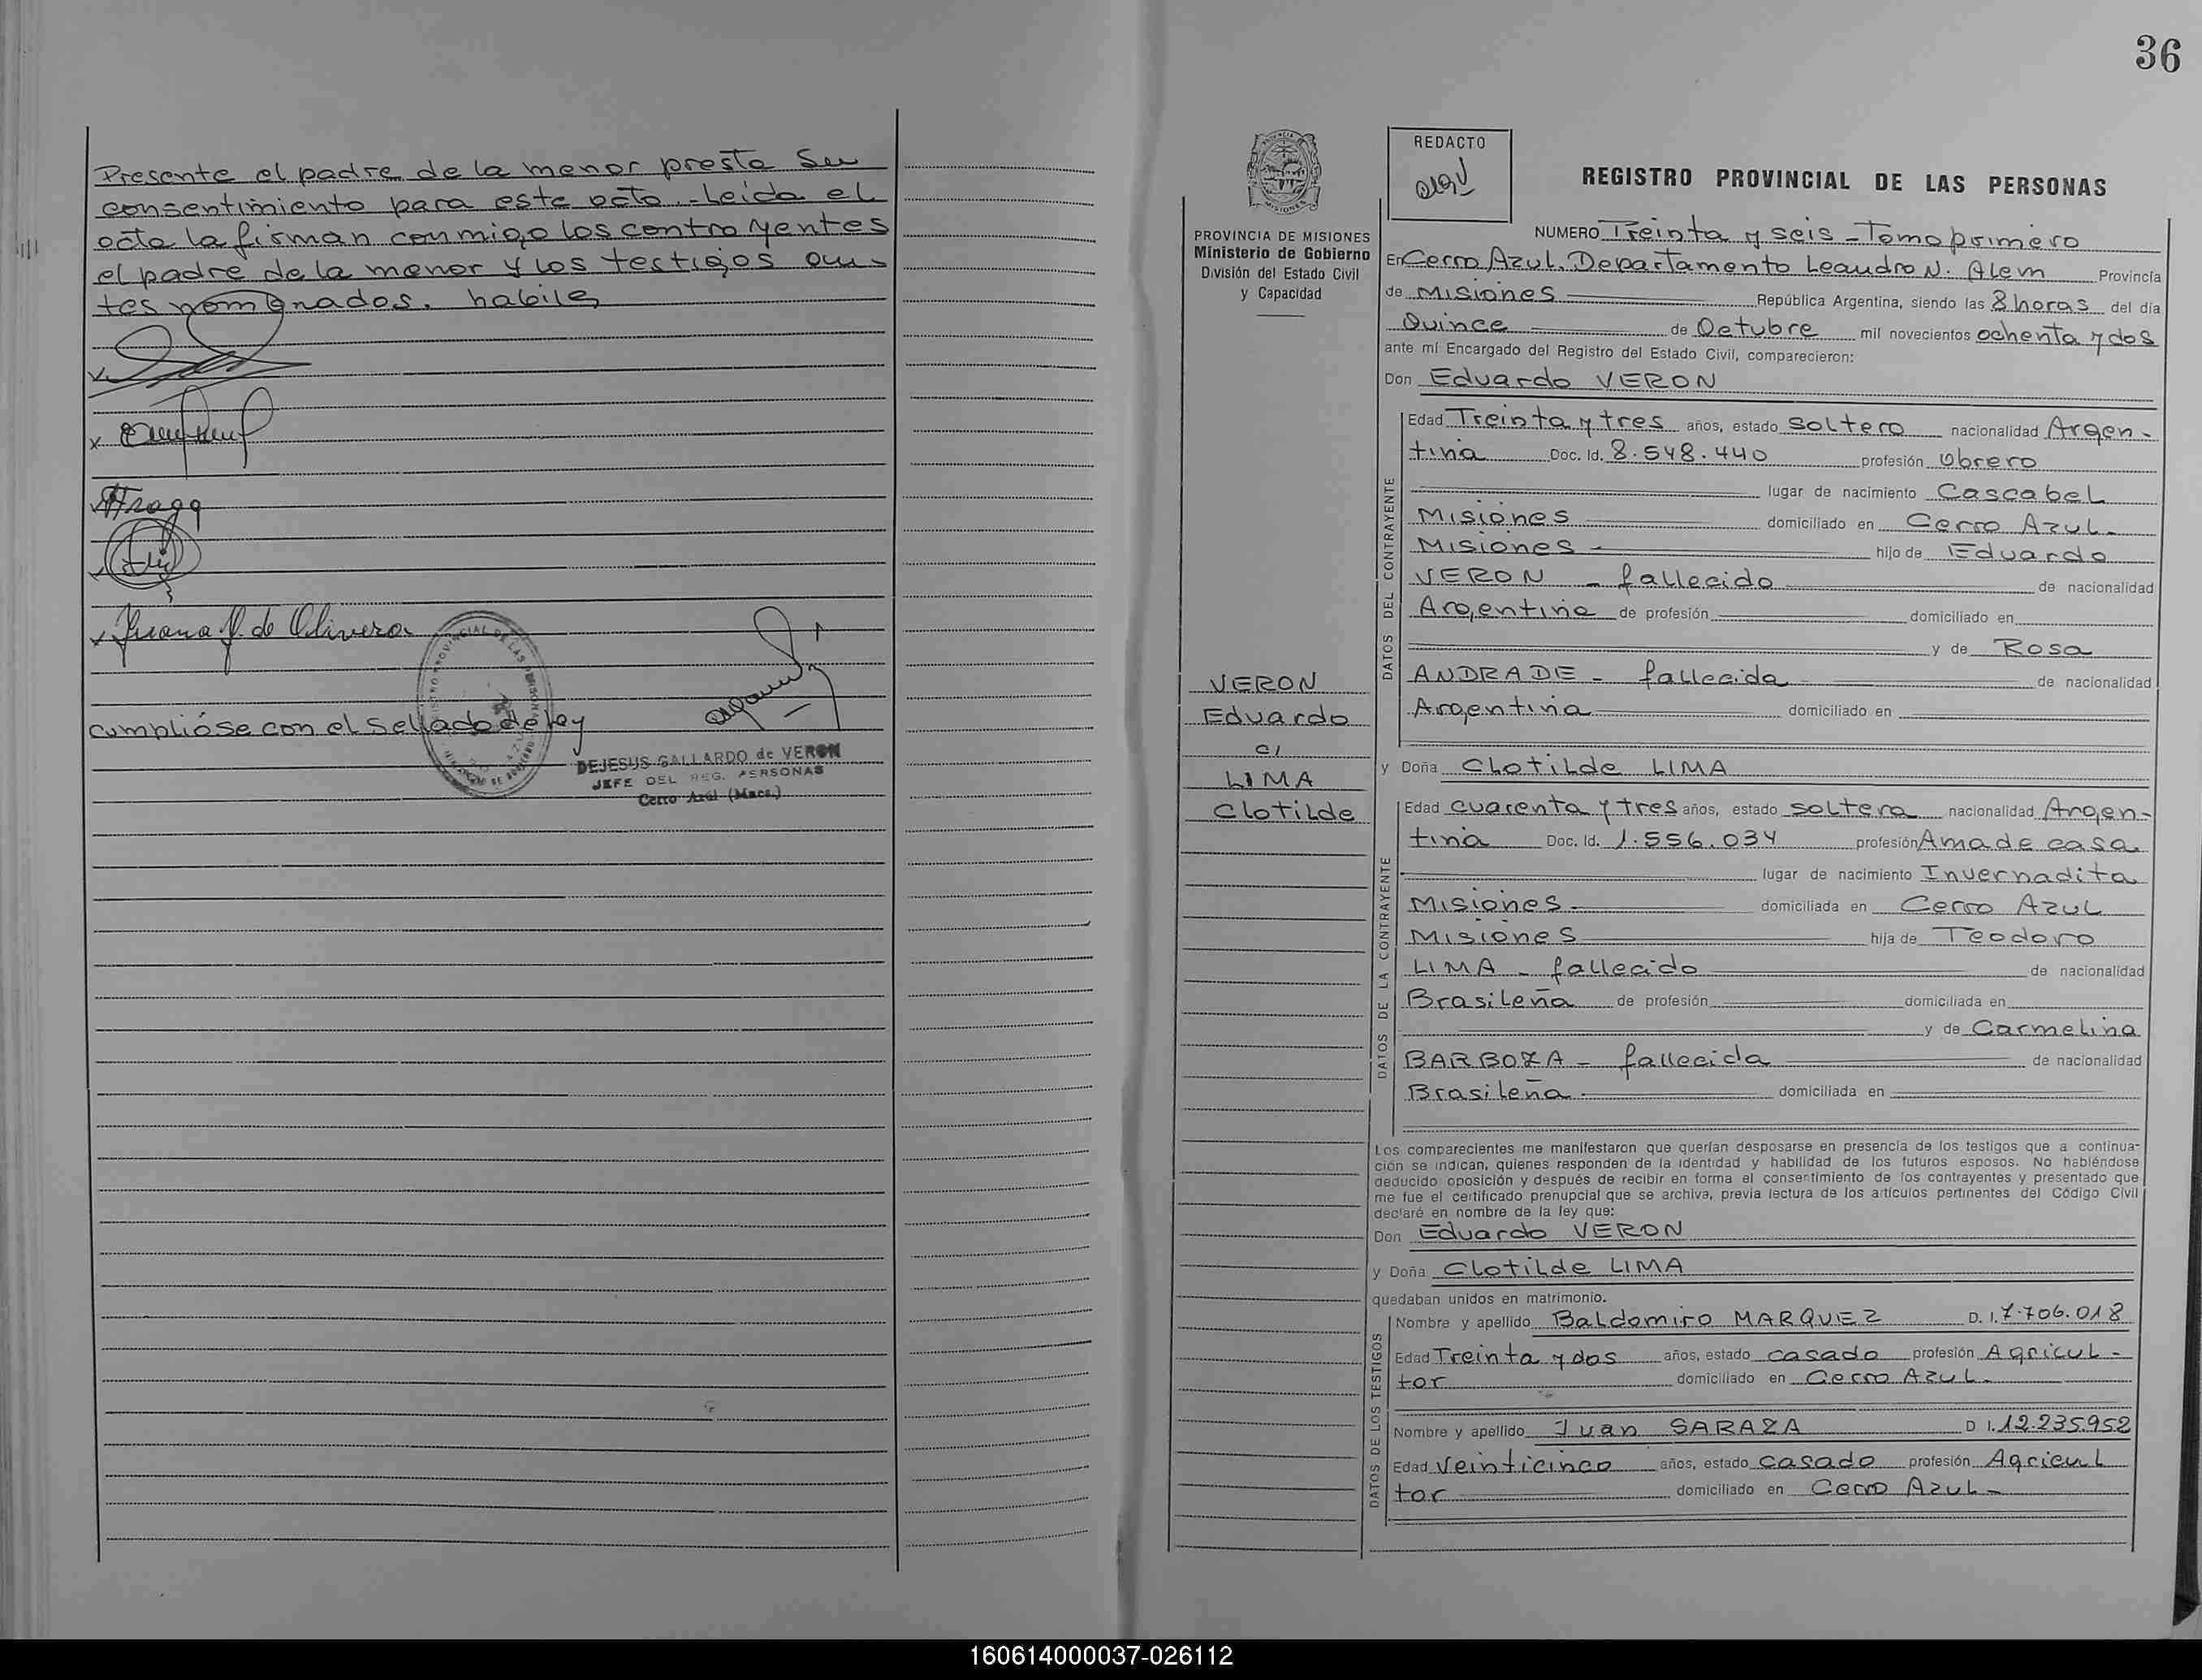 36
Presente el padre de la menor presta su
consentimiento para este acto.-Leida el
acta la firman conmigo los contrayentes
el padre de la menor y los testigos
tes nombrados. habiles
Juana de Olivera
cumplióse con el sellado de ley
DEJESUS GALLARDO de VERON
JEFE DEL REG. PERSONAS
Cerro Azul (Mnes.)
PROVINCIA DE MISIONES
Ministerio de Gobierno
División del Estado Civil
y Capacidad
VERON
Eduardo
c/
LIMA
Clotilde
REDACTO
REGISTRO PROVINCIAL DE LAS PERSONAS
NUMERO Treinta y seis - Tomo primero
En Cerro Azul, Departamento Leandro N. Alem Provincia
de Misiones República Argentina, siendo las 8 horas del día
Quince de Octubre mil novecientos ochenta y dos
ante mí Encargado del Registro del Estado Civil, comparecieron:
Don Eduardo VERON
DATOS DEL CONTRAYENTE
Edad Treinta y tres años, estado soltero nacionalidad Argen-
tina Doc. Id. 8.548.440 profesión Obrero
lugar de nacimiento Cascabel
Misiones domiciliado en Cerro Azul-
Misiones - hijo de Eduardo
VERON - fallecido de nacionalidad
Argentina de profesión domiciliado en
y de Rosa
ANDRADE - fallecida de nacionalidad
Argentina domiciliado en
y Doña Clotilde LIMA
DATOS DE LA CONTRAYENTE
Edad cuarenta y tres años, estado soltera nacionalidad Argen-
tina Doc. Id. 1.556.034 profesión Ama de casa
lugar de nacimiento Invernadita
Misiones - domiciliada en Cerro Azul
Misiones hija de Teodoro
LIMA - fallecido de nacionalidad
Brasileña de profesión domiciliada en
y de Carmelina
BARBOZA - fallecida de nacionalidad
Brasileña domiciliada en
Los comparecientes me manifestaron que querían desposarse en presencia de los testigos que a continua-
ción se indican, quienes responden de la identidad y habilidad de los futuros esposos. No habiéndose
deducido oposición y después de recibir en forma el consentimiento de los contrayentes y presentado que
me fue el certificado prenupcial que se archiva, previa lectura de los artículos pertinentes del Código Civil
declaré en nombre de la ley que:
Don Eduardo VERON
y Doña Clotilde LIMA
quedaban unidos en matrimonio.
DATOS DE LOS TESTIGOS
Nombre y apellido Baldomiro MARQUEZ D. I. 7.706.018
Edad Treinta y dos años, estado casado profesión Agricul-
tor domiciliado en Cerro Azul-
Nombre y apellido Juan SARAZA D I. 12.235.952
Edad Veinticinco años, estado casado profesión Agricul
tor domiciliado en Cerro Azul-
160614000037-026112